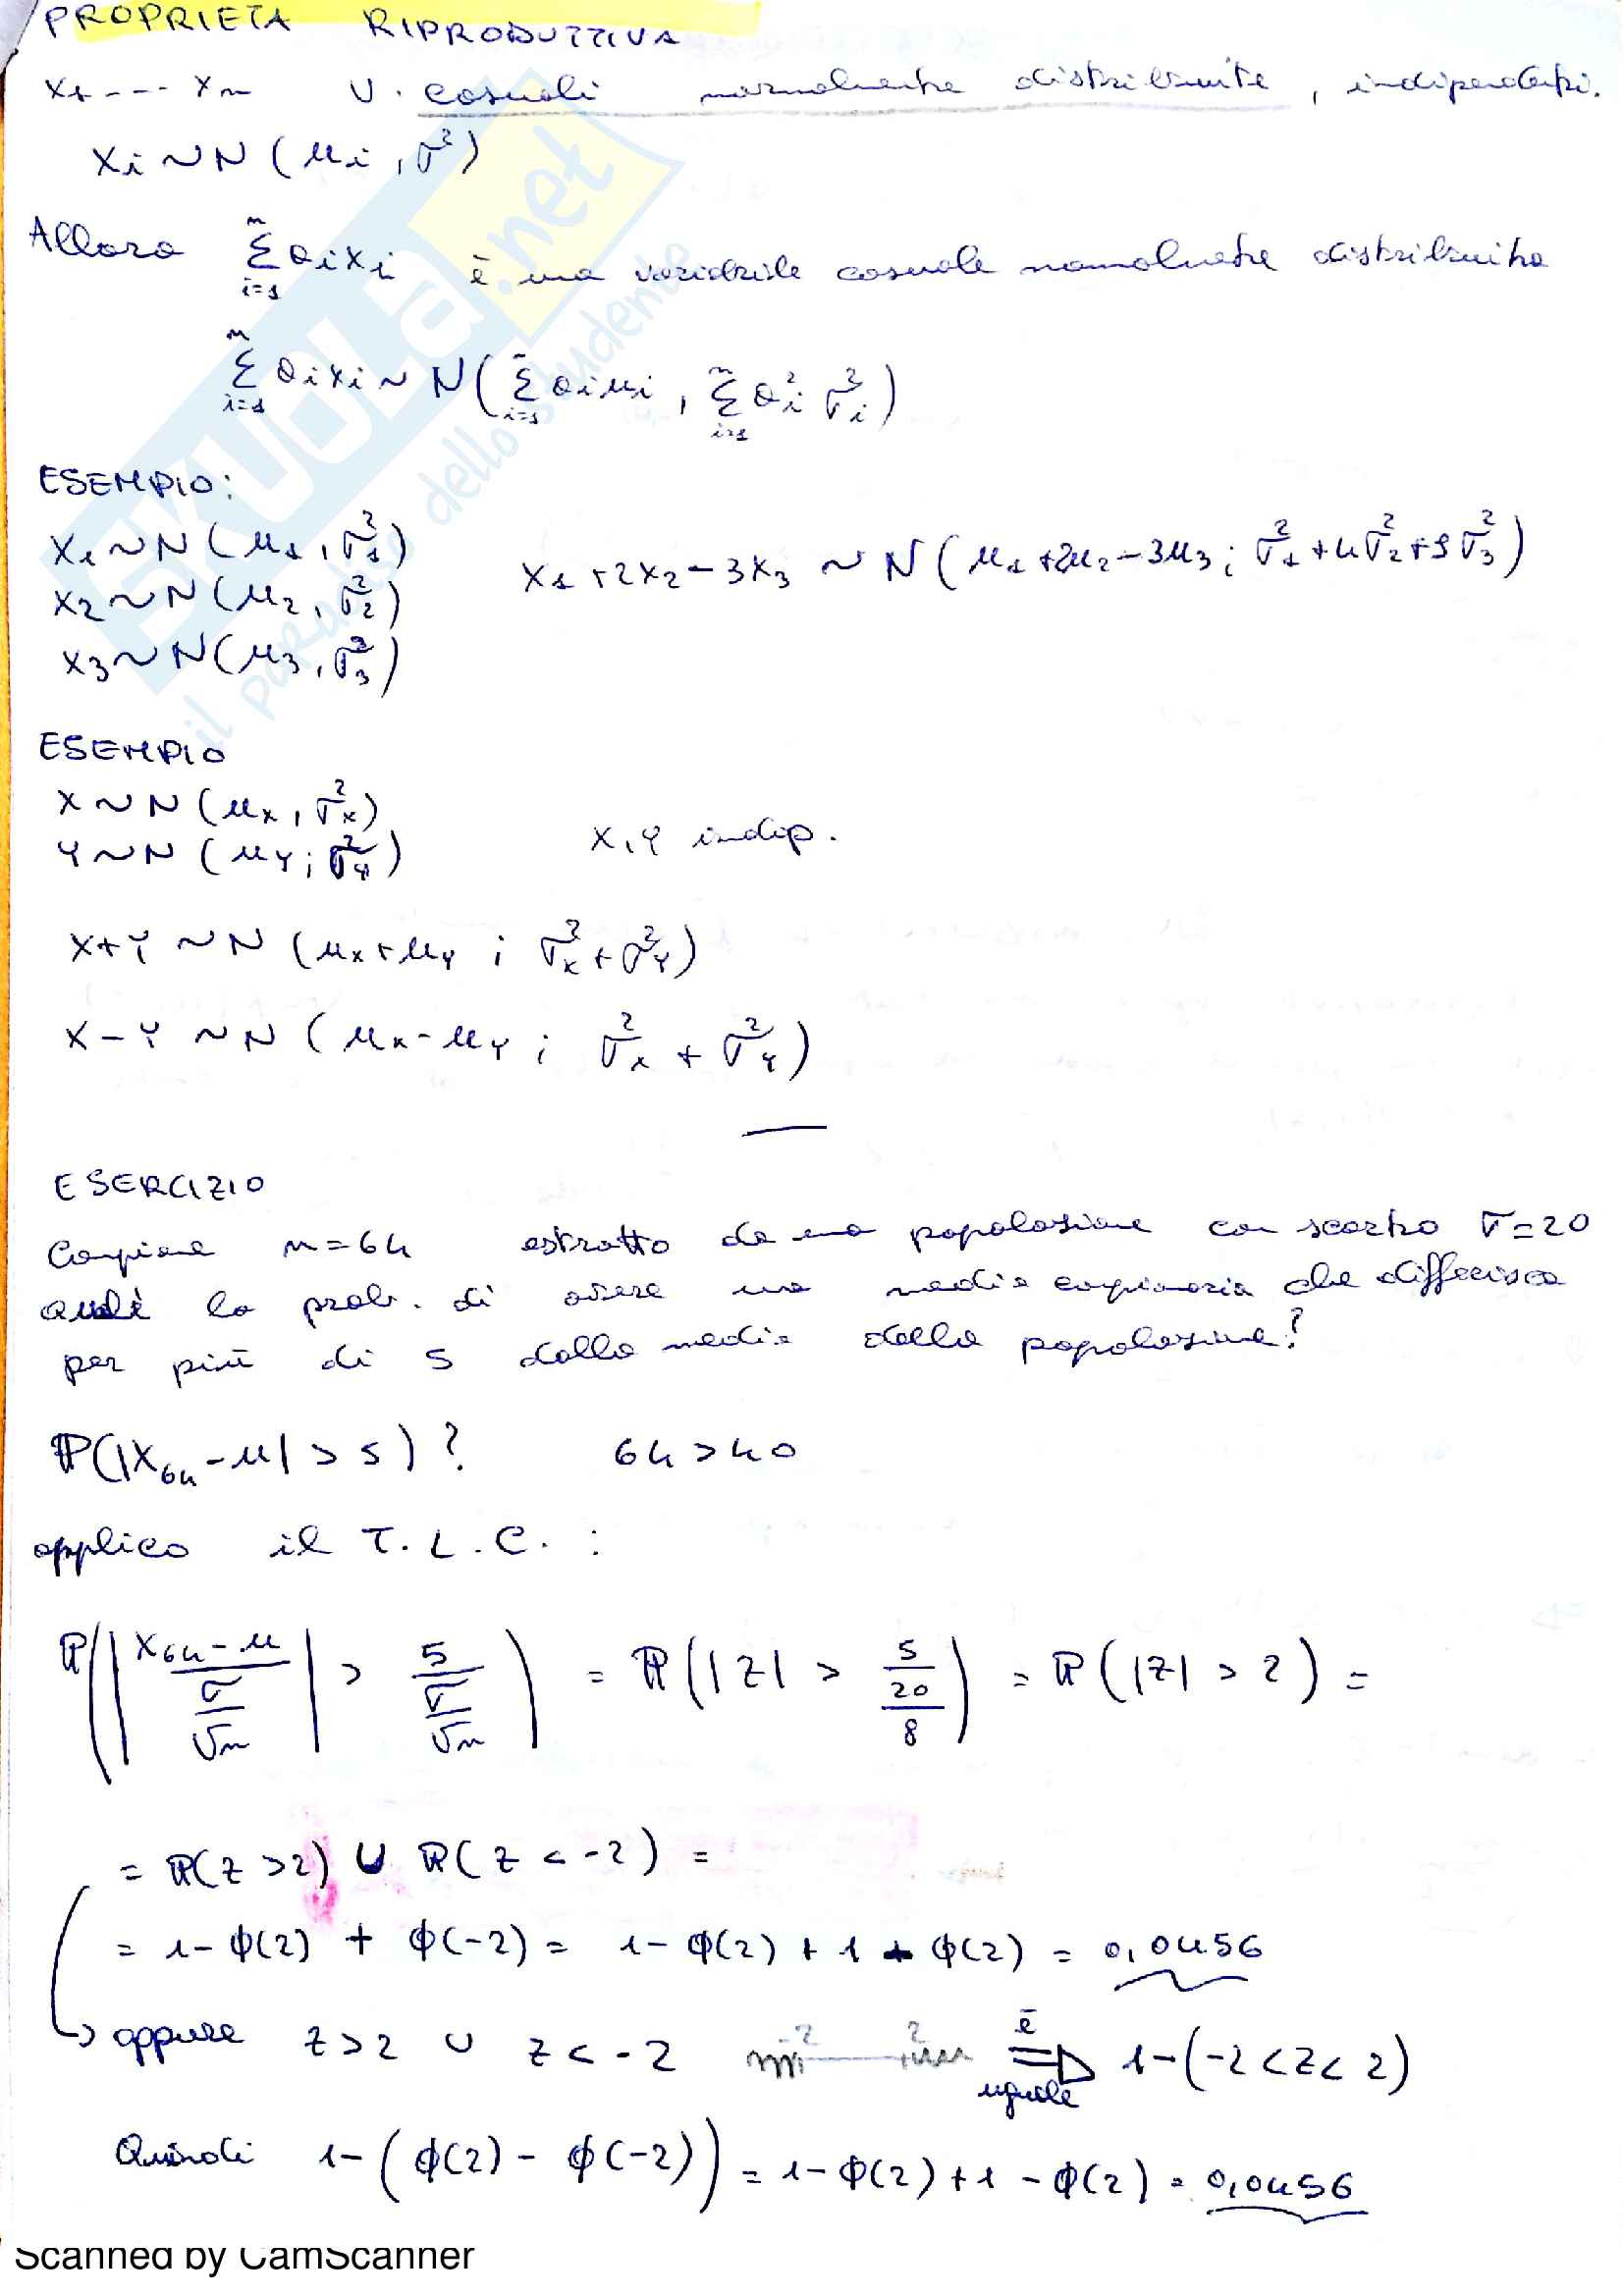 PROPRIETA RIPRODUTTIVA
X1 --- Xn V. casuali normalmente distribuite, indipendenti.
Xi ~ N (μi, σ²)
Allora Σ(i=1)^n aixi è una variabile casuale normalmente distribuita
Σ(i=1)^n aixi ~ N(Σ(i=1)^n aiμi, Σ(i=1)^n ai² σi²)
ESEMPIO:
X1 ~ N (μ1, σ1²)
X1 + 2X2 - 3X3 ~ N (μ1 + 2μ2 - 3μ3; σ1² + 4σ2² + 9σ3²)
X2 ~ N (μ2, σ2²)
X3 ~ N (μ3, σ3²)
ESEMPIO
X ~ N (μx, σx²)
Y ~ N (μY; σY²)
X, Y indip.
X+Y ~ N (μx + μY ; σx² + σY²)
X-Y ~ N (μx - μY ; σx² + σY²)
ESERCIZIO
Campione n=64 estratto da una popolazione con scarto σ=20
Qual è la prob. di avere una media campionaria che differisca
per più di 5 dalla media della popolazione?
P(|X64 - μ| > 5) ? 64 > 40
applico il T.L.C. :
P(|(X64 - μ)/(σ/√n)| > 5/(σ/√n)) = P(|Z| > 5/(20/8)) = P(|Z| > 2) =
= P(Z > 2) ∪ P(Z < -2) =
= 1 - φ(2) + φ(-2) = 1 - φ(2) + 1 - φ(2) = 0,0456
→ oppure Z > 2 ∪ Z < -2 -2 2 è uguale ⇒ 1 - (-2 < Z < 2)
Quindi 1 - (φ(2) - φ(-2)) = 1 - φ(2) + 1 - φ(2) = 0,0456
SKUOLa.net
il paradiso dello studente
Scanned by CamScanner